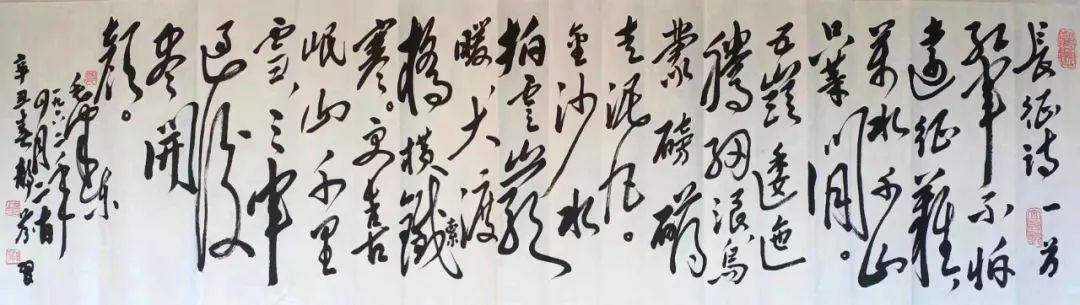 長征詩一首
紅軍不怕
遠征難,
萬水千山
只等閒。
五嶺逶迤
騰細浪烏
蒙磅礴
走泥丸。
金沙水
拍雲崖
暖,大渡
橋橫鐵索
寒。更喜
岷山千里
雪,三軍
過後
盡開
顏。
毛澤東
一九六二年
四月二十日
辛丑春